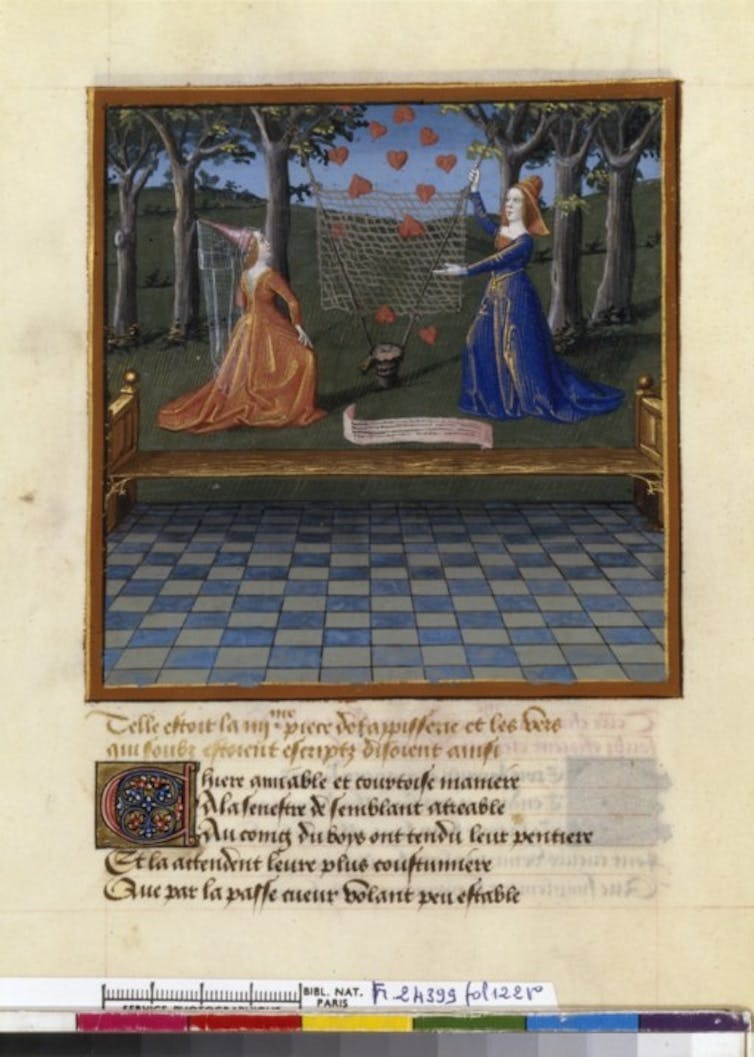 Telle estoit la iiii me piece de tappisserie et les vers
qui soubz estoient escriptz disoient ainsi
Chiere amiable et courtoise maniere
A la senestre de semblant atreable
Au coing du boys ont tendu leur pentiere
Et la attendent leure plus coustumiere
Que par la passe cueur volant peu estable
BIBL. NAT.
PARIS
SERVICE PHOTOGRAPHIQUE
Fr 24399 fol 122 v